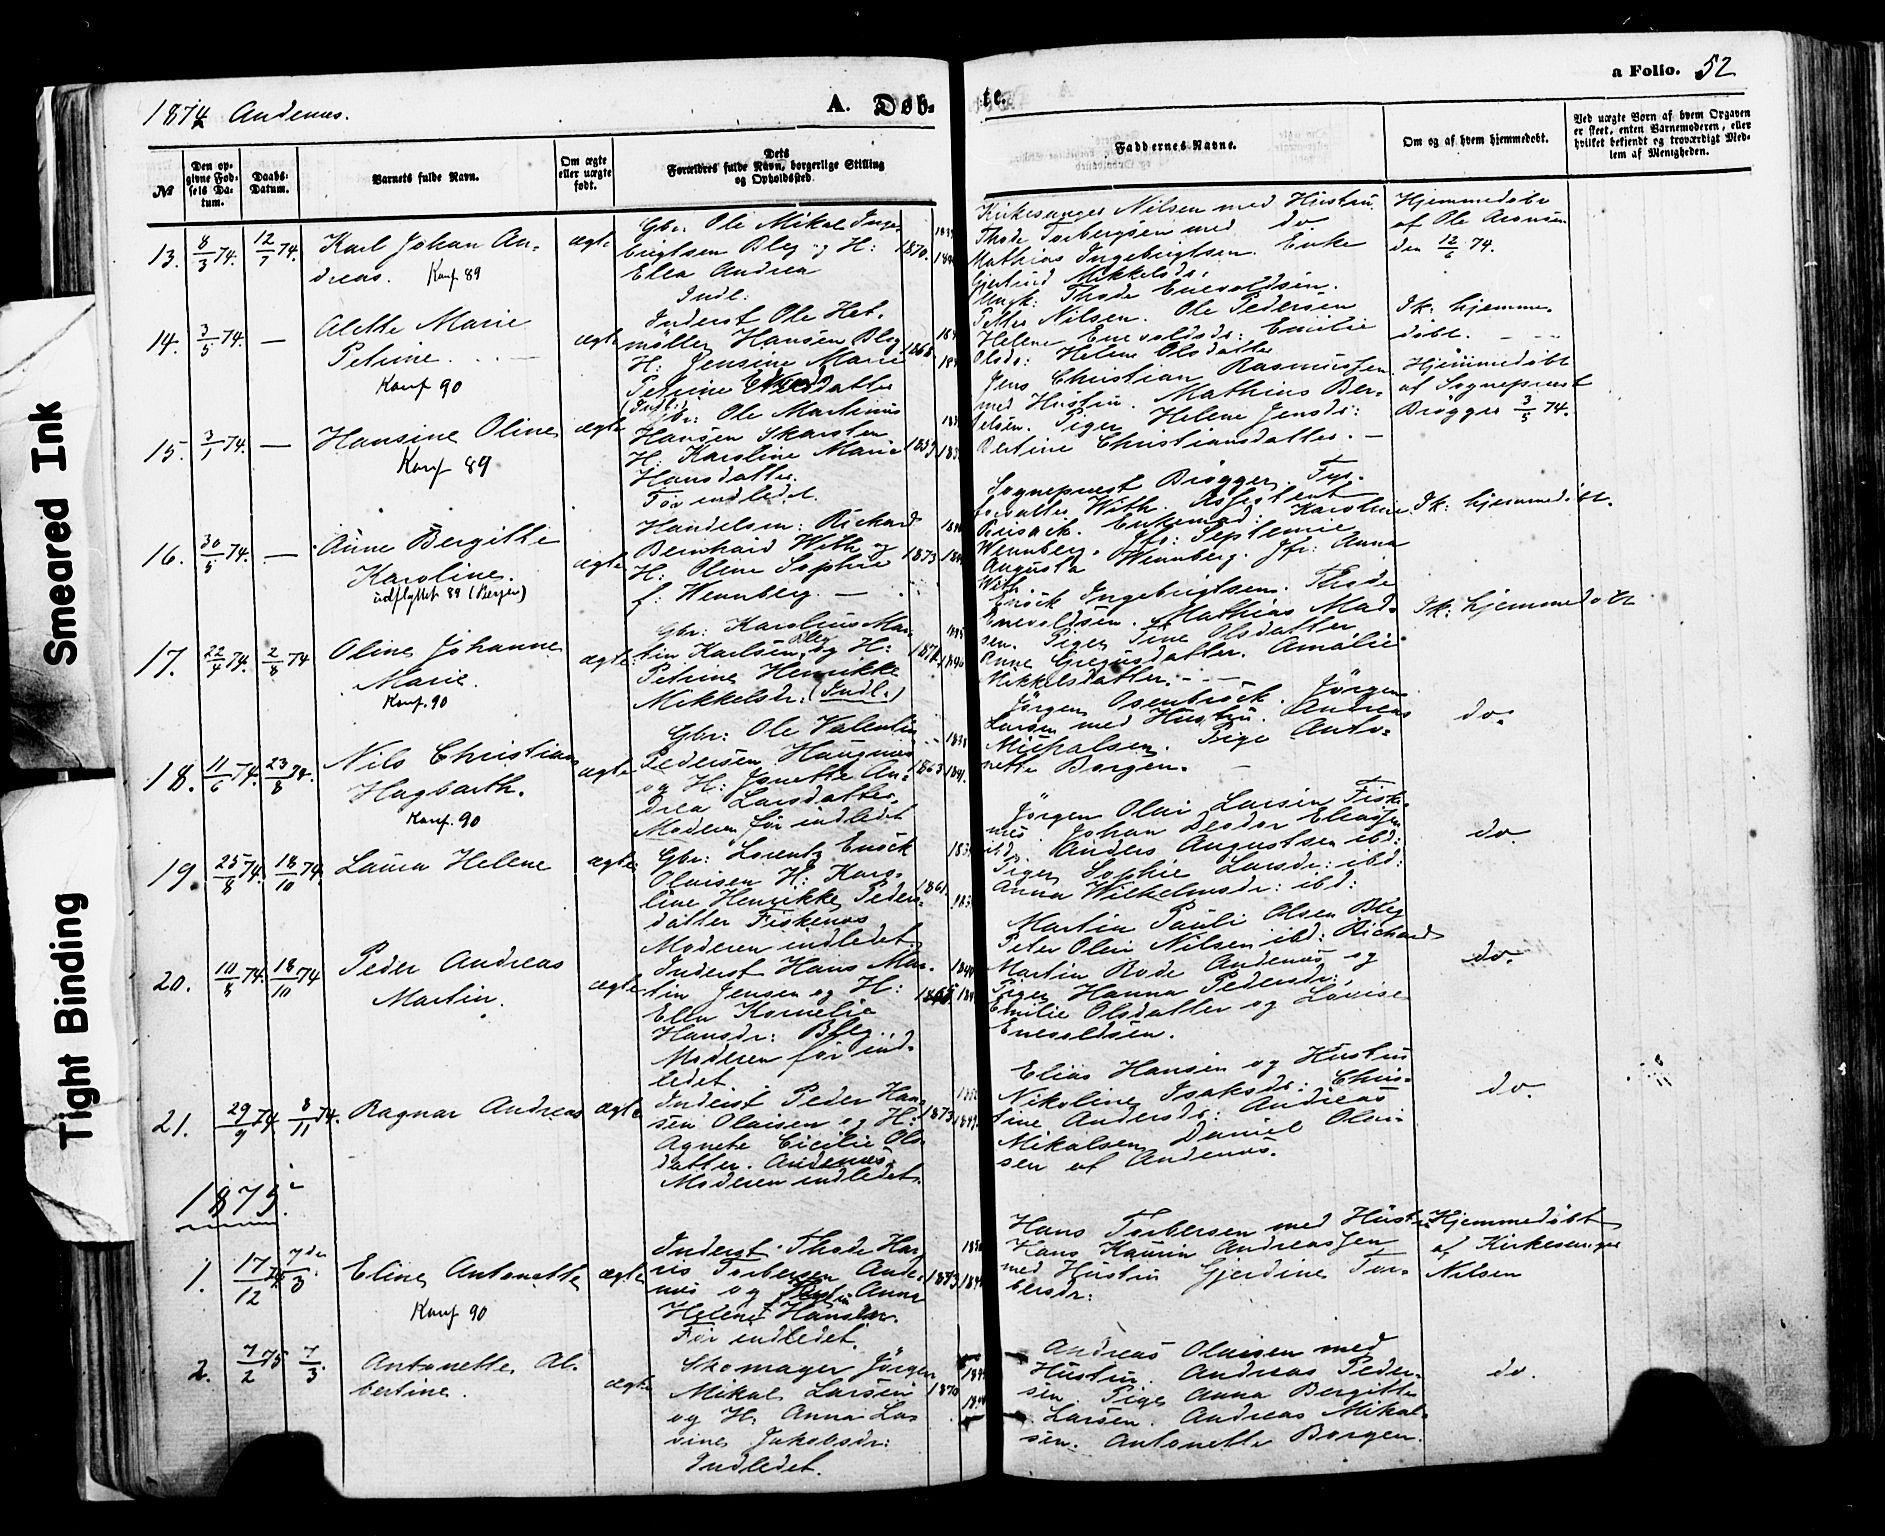 1874 Andenæs.
A. Døb-
te.
a Folio. 52
№
Den op-
givne Fød-
sels Da-
tum.
Daabs-
Datum.
Barnets fulde Navn.
Om ægte
eller uægte
født.
Dets
Forældres fulde Navn, borgerlige Stilling
og Opholdssted.
Faddernes Navne.
Om og af hvem hjemmedøbt.
Ved uægte Børn af hvem Opgaven
er skeet, enten Barnemoderen, eller
hvilket bekjendt og troværdigt Med-
lem af Menigheden.
13. 8/3 74. 12/7 74.
Karl Johan An-
dreas. Konf 89
ægte
Gbr: Ole Mikal Inge-
brigtsen Bleg og H:
Ella Andrea
Indl:
1870.
Kirkesanger Nilsen med Hustru.
Thode Torbergsen med do
Mathias Ingebrigtsen. Enke
Gjertrud Mikkelsdr.
Hjemmedøbt
af Ole Aronsen
den 12/6 74.
14. 3/5 74. —
Alette Marie
Petrine.
Konf 90
ægte
Inderst Ole Het-
møller Hansen Bleg
H. Jensine Marie
Petrine
(Indl:)
Ungk: Thode Enevoldsen.
Petter Nilsen. Ole Pedersen
Helene Enevoldsdr: Emilie
Olsdr: Helene Olsdatter
Ik: hjemme-
døbt.
15. 3/1 74. —
Hansine Oline
Konf 89
ægte
Gbr: Ole Martinus
Hansen Skarsten
H. Karoline Marie
Hansdatter.
Før indledet.
1859
Jens Christian Rasmussen
med Hustru. Mathias Ber-
telsen. Piger Helene Jensdr:
Bertine Christiansdatter. —
Hjemmedøbt
af Sognepræst
Brøgger 3/5 74.
16. 30/5 74. —
Anne Bergitte
Karoline.
udflyttet 89 (Bergen)
ægte
Handelsm: Richard
Bernhard With og
H. Oline Sophie
f: Wennberg. —
1873
Sognepræst Brøgger. Fyr-
forvalter With. Assistent
Enkemad: Karoline
Wennberg. Jfr: Septemie
Augusta Wennberg. Jfr: Anna
With
Ik: hjemmedøbt.
17. 22/4 74. 2/8 74
Oline Johanne
Marie.
Konf. 90
ægte
Gbr: Karolius Mar-
tin Karlsen Bleg og H:
Petrine Henrikke
Mikkelsdr. (Indl.)
Enock Ingebrigtsen. Thode
Enevoldsen. Mathias Mad-
sen. Piger Tine Olsdatter
Anne Gregusdatter. Amalie
Mikkelsdatter.
Ik: hjemmedøbt
18. 11/6 74. 23/8 74.
Nils Christian
Hagbarth.
Konf. 90
ægte
Gbr: Ole Valentin
Pedersen Haugnæs
og H: Jonette An-
drea Larsdatter.
Moderen før indledet
1863 1841.
Jørgen Osenbrock. Jørgen
Larsen med Hustru. Andreas
Michalsen. Pige Anto-
nette Borgen.
do:
19 25/8 74. 18/10 74.
Laura Helene
ægte
Gbr: Lorentz Enock
Olaisen H: Karo-
line Henrikke Peders-
datter Fiskenæs
Moderen indledet.
1861.
Jørgen Olai Larsen Fiske-
næs Johan Deodor Eliassen
ibd. Anders Augustsen ibd:
Piger Sophie Larsdr: ibd:
Anna Wilhelmsdr: ibd:
do.
20. 10/8 74. 18/10 74
Peder Andreas
Martin.
ægte
Inderst Hans Mar-
tin Jensen og H:
Ella Kornelia
Hansdr: Bleg.
Moderen før ind-
ledet.
Martin Pauli Olsen Bleg
Peter Olai Nilsen ibd: Richard
Martin Bode Andenæs og
Piger Hanna Pedersdr:
Emilie Olsdatter og Lovise
Enevoldsen.
do.
21. 29/9 74. 8/11 74.
Ragnar Andreas
ægte
Inderst Peder Han-
sen Olaisen og H:
Agnete Cicilie Ols-
datter. Andenæs.
Moderen indledet.
1873
Elias Hansen og Hustru
Nikoline Isaksdr: Chris-
tine Andersdr: Andreas
Mikalsen Daniel Olai-
sen af Andenæs.
do.
1875.
1. 17/12 74 7de/3
Eline Antonette
Konf 90
ægte
Inderst Thode Har-
ris Torbersen Ande-
næs og Anna
Helene Hansdr.
Før indledet.
1873.
Hans Torbersen med Hustru
Hans Kaurin Andreassen
med Hustru Gjerdine Tor-
bersdr:
Hjemmedøbt
af Kirkesanger
Nilsen
2. 7/2 75 7/3
Antonette Al-
bertine.
ægte
Skomager Jørgen
Mikal Larsen
og H. Anna La-
vine Jakobsdr:
Indledet.
1870
Andreas Olaisen med
Hustru. Andreas Peder-
sen. Pige Anna Bergitte
Larsen. Andreas Mikal-
sen. Antonette Borgen.
do.
Smeared Ink
Tight Binding